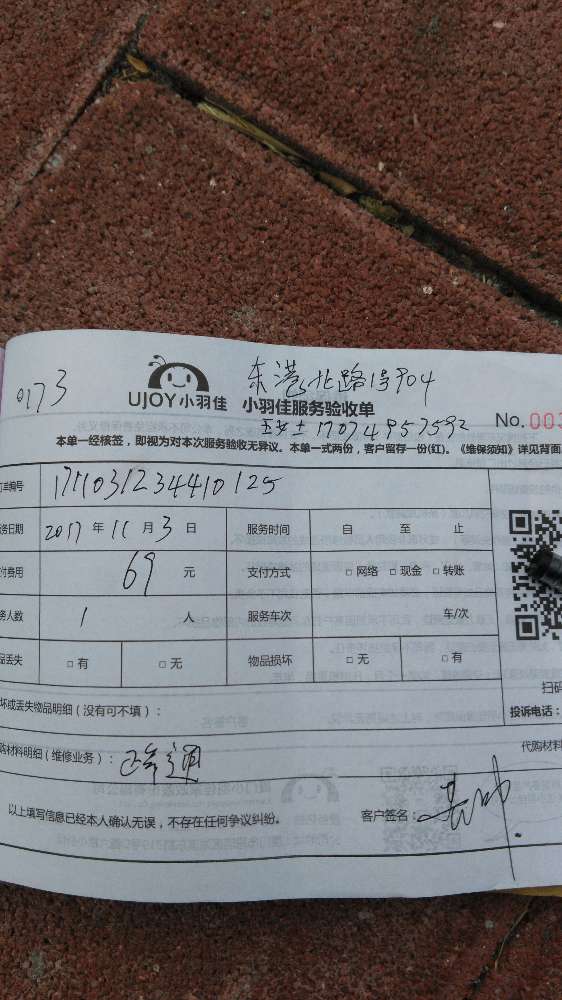 0173
东港北路13号904
UJOY小羽佳 小羽佳服务验收单
17074957592
No. 003
本单一经核签，即视为对本次服务验收无异议。本单一式两份，客户留存一份(红)。《维保须知》详见背面
订单编号 1711031234410125
务日期 2017 年 11 月 3 日 服务时间 自 至 止
付费用 69 元 支付方式 □ 网络 □ 现金 □ 转账
务人数 1 人 服务车次 车/次
品丢失 □ 有 □ 无 物品损坏 □ 无 □ 有
扫码
坏或丢失物品明细（没有可不填）：
投诉电话：
购材料明细（维修业务）：
代购材料
以上填写信息已经本人确认无误，不存在任何争议纠纷。 客户签名：